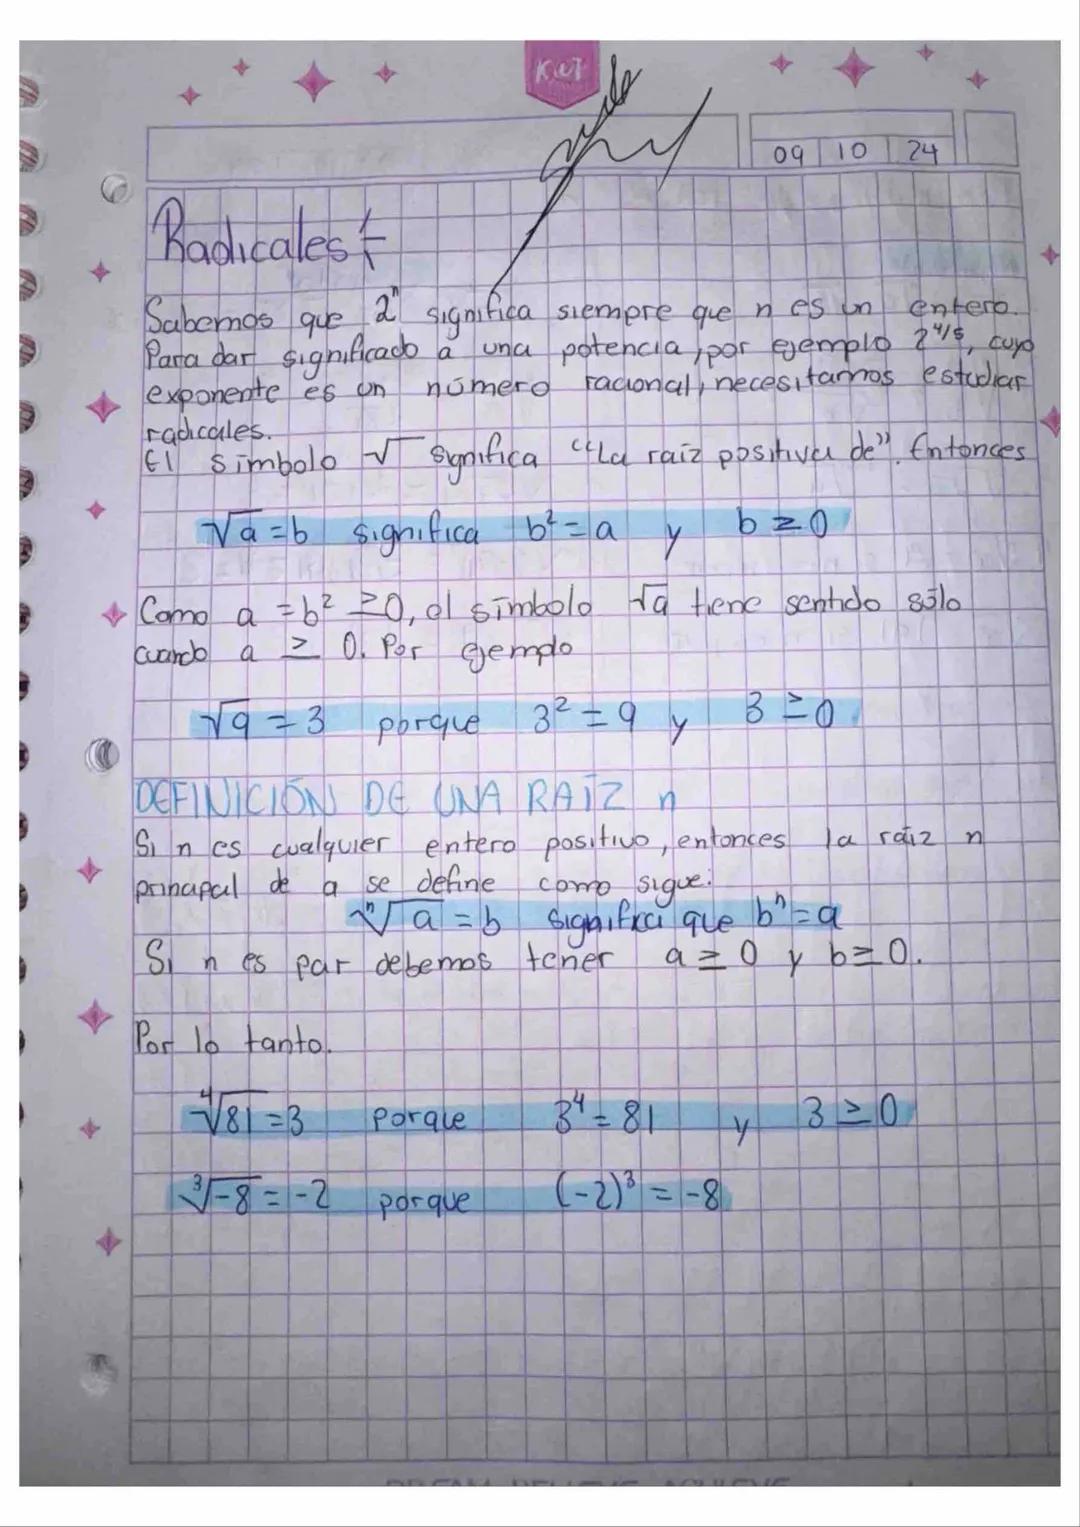 KUT
09 10 24
Radicales
Sabemos que 2ⁿ significa siempre que n es un entero.
Para dar significado a una potencia, por ejemplo 2^4/5, cuyo
exponente es un número racional, necesitamos estudiar
radicales.
El símbolo √ significa "La raíz positiva de". Entonces
√a = b significa b² = a y b ≥ 0
Como a = b² ≥ 0, el símbolo √a tiene sentido sólo
cuando a ≥ 0. Por ejemplo
√9 = 3 porque 3² = 9 y 3 ≥ 0
DEFINICIÓN DE UNA RAÍZ n
Si n es cualquier entero positivo, entonces la raíz n
principal de a se define como sigue:
ⁿ√a = b significa que bⁿ = a
Si n es par debemos tener a ≥ 0 y b ≥ 0.
Por lo tanto.
⁴√81 = 3 porque 3⁴ = 81 y 3 ≥ 0
³√-8 = -2 porque (-2)³ = -8